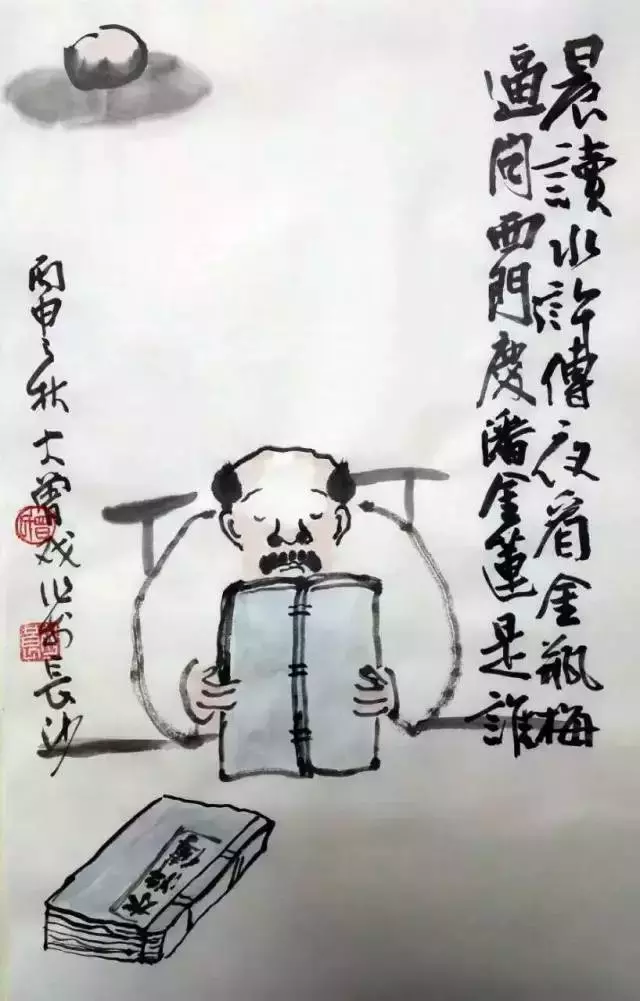 晨讀水許傳夜看金瓶梅
逼问西門慶潘金蓮是誰
丙申之秋大曾戏作長沙
水滸傳